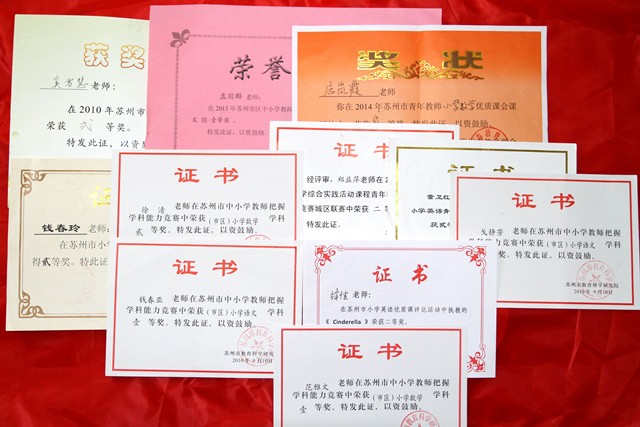 获奖
老师:
在2010年苏州市
荣获 贰 等奖。
特发此证,以资
荣誉
孟丽群 老师:
在2013年苏州市区中小学教师
文 组 壹等奖。
特发此证,以资鼓励。
奖 状
老师
你在2014年苏州市青年教师小学数学优质课会课
特发此状,以资鼓励。
证
钱春玲 老师:
在苏州市中小
得贰等奖。特此证
证书
徐清 老师在苏州市中小学教师把握
学科能力竞赛中荣获(市区)小学数学 学科
贰 等奖。特发此证,以资鼓励。
证书
经评审,郑益萍老师在2
学综合实践活动课程青年
竞赛城区联赛中荣获 二
特发此证,以资鼓励。
证书
董卫红
小学英语青
获贰
证书
戈静芳 老师在苏州市中小学教师把握
学科能力竞赛中荣获(市区)小学语文 学科
等奖。特发此证,以资鼓励。
苏州市教育科学研究院
2010年9月10日
证书
钱春亚 老师在苏州市中小学教师把握
学科能力竞赛中荣获(市区)小学语文 学科
壹 等奖。特发此证,以资鼓励。
苏州市教育科学研究院
2010年9月10日
证书
徐佳 老师:
在苏州市小学英语优质课评比活动中执教的
《 Cinderella 》荣获二等奖。
证书
范雅文 老师在苏州市中小学教师把握
学科能力竞赛中荣获(市区)小学数学 学科
壹 等奖。特发此证,以资鼓励。